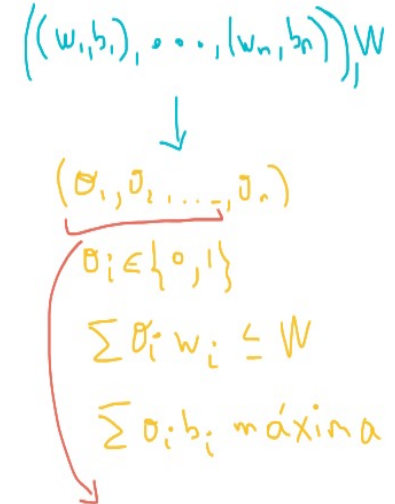 ((w₁,b₁), ..., (wₙ,bₙ)), W
(σ₁, σ₂, ..., σₙ)
σᵢ ∈ {0,1}
∑ σᵢ wᵢ ≤ W
∑ σᵢ bᵢ máxima